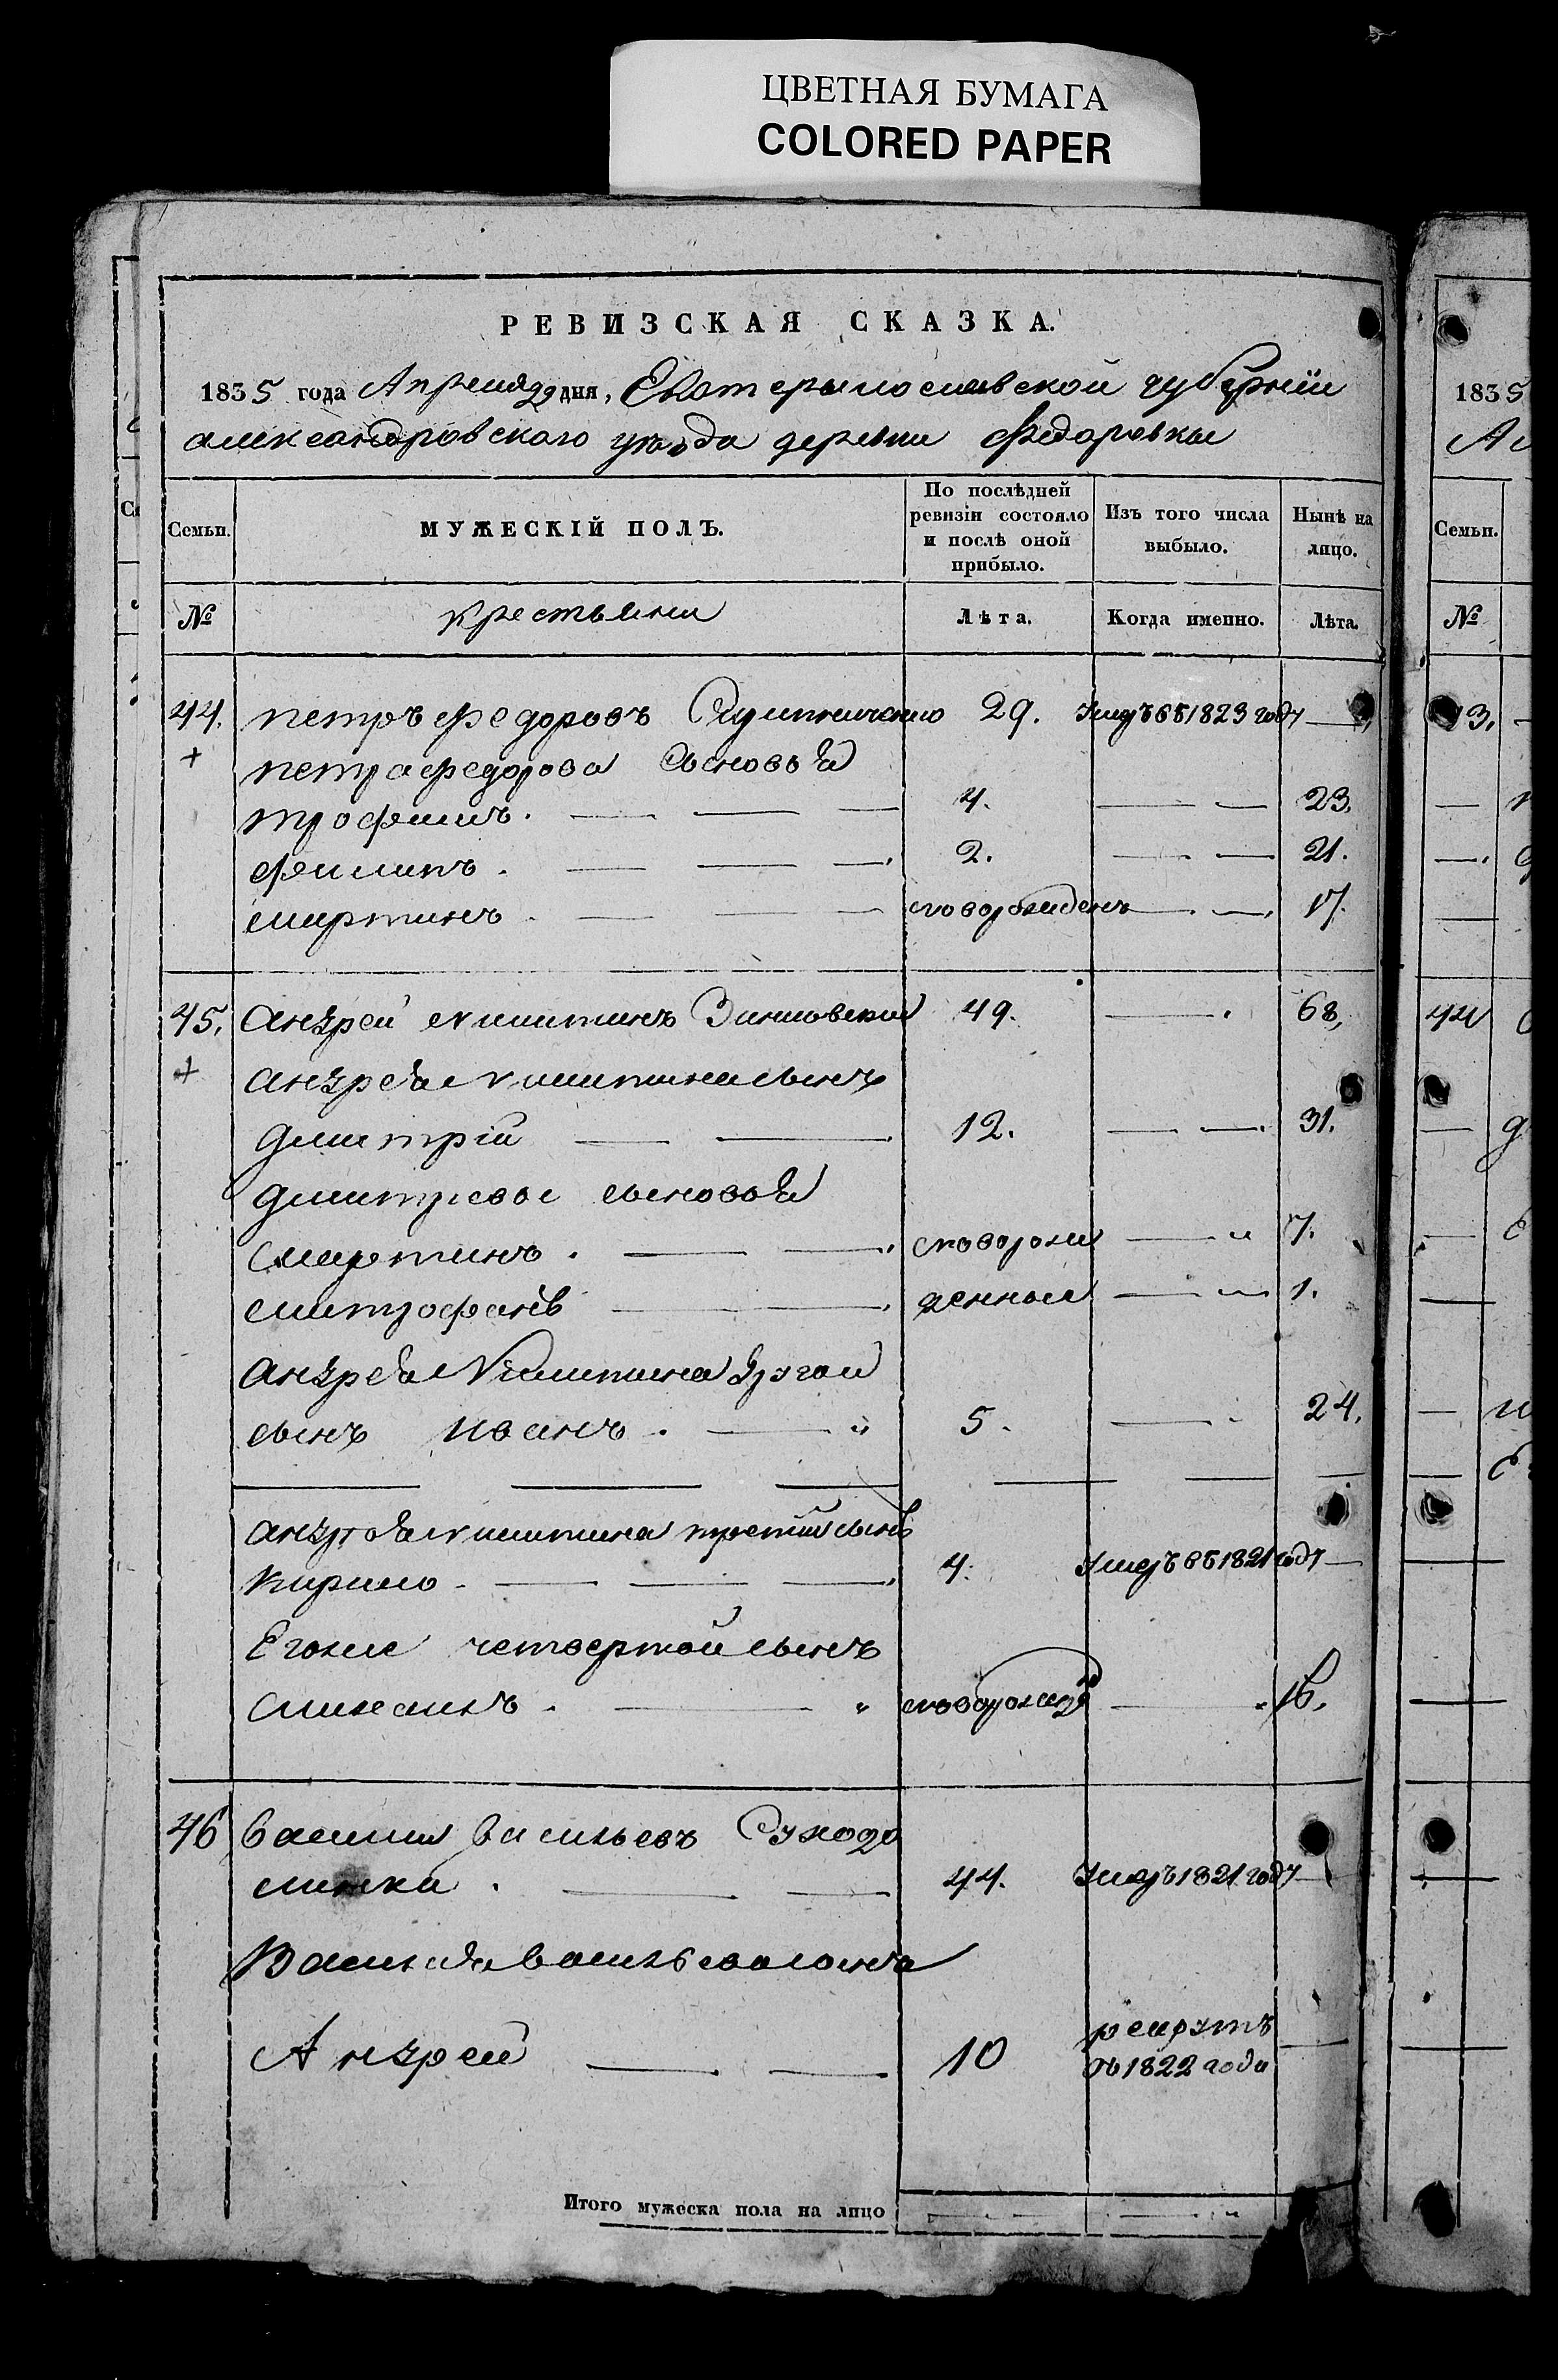 ЦВЕТНАЯ БУМАГА
COLORED PAPER
РЕВИЗСКАЯ СКАЗКА.
1835 года Апреля 29 дня, Екатеринославской губернїи
александровскаго уезда деревни Федоровки
Семьи.
МУЖЕСКІЙ ПОЛЪ.
По послѣдней ревизіи состояло и послѣ оной прибыло.
Изъ того числа выбыло.
Нынѣ на лицо.
№
крестьяни
Лѣта.
Когда именно.
Лѣта.
44. петръ федоровъ 29. Умеръ въ 1823 году
+ петра федорова сыновья
трофимъ. 4. 23.
филипъ. 2. 21.
мартинъ. новорожденъ 17.
45. Андрей никитинъ 49. 68,
+ андрея никитина сынъ
дмитрїй 12. 31.
дмитревы сыновья
мартинъ. новорож 7.
митрофанъ денныи 1.
андрея Никитина другои
сынъ иванъ. 5. 24.
андрея никитина третїй сынъ
кирило. 4. Умеръ въ 1821 году
Егоже четвертой сынъ
новорожд 16.
46 василии васильевъ Суходо
44. Умеръ 1821 году
Василя васильева сынъ
Андреи 10 рекрутъ
въ 1822 года
Итого мужеска пола на лицо
1835
Семьи.
№
44